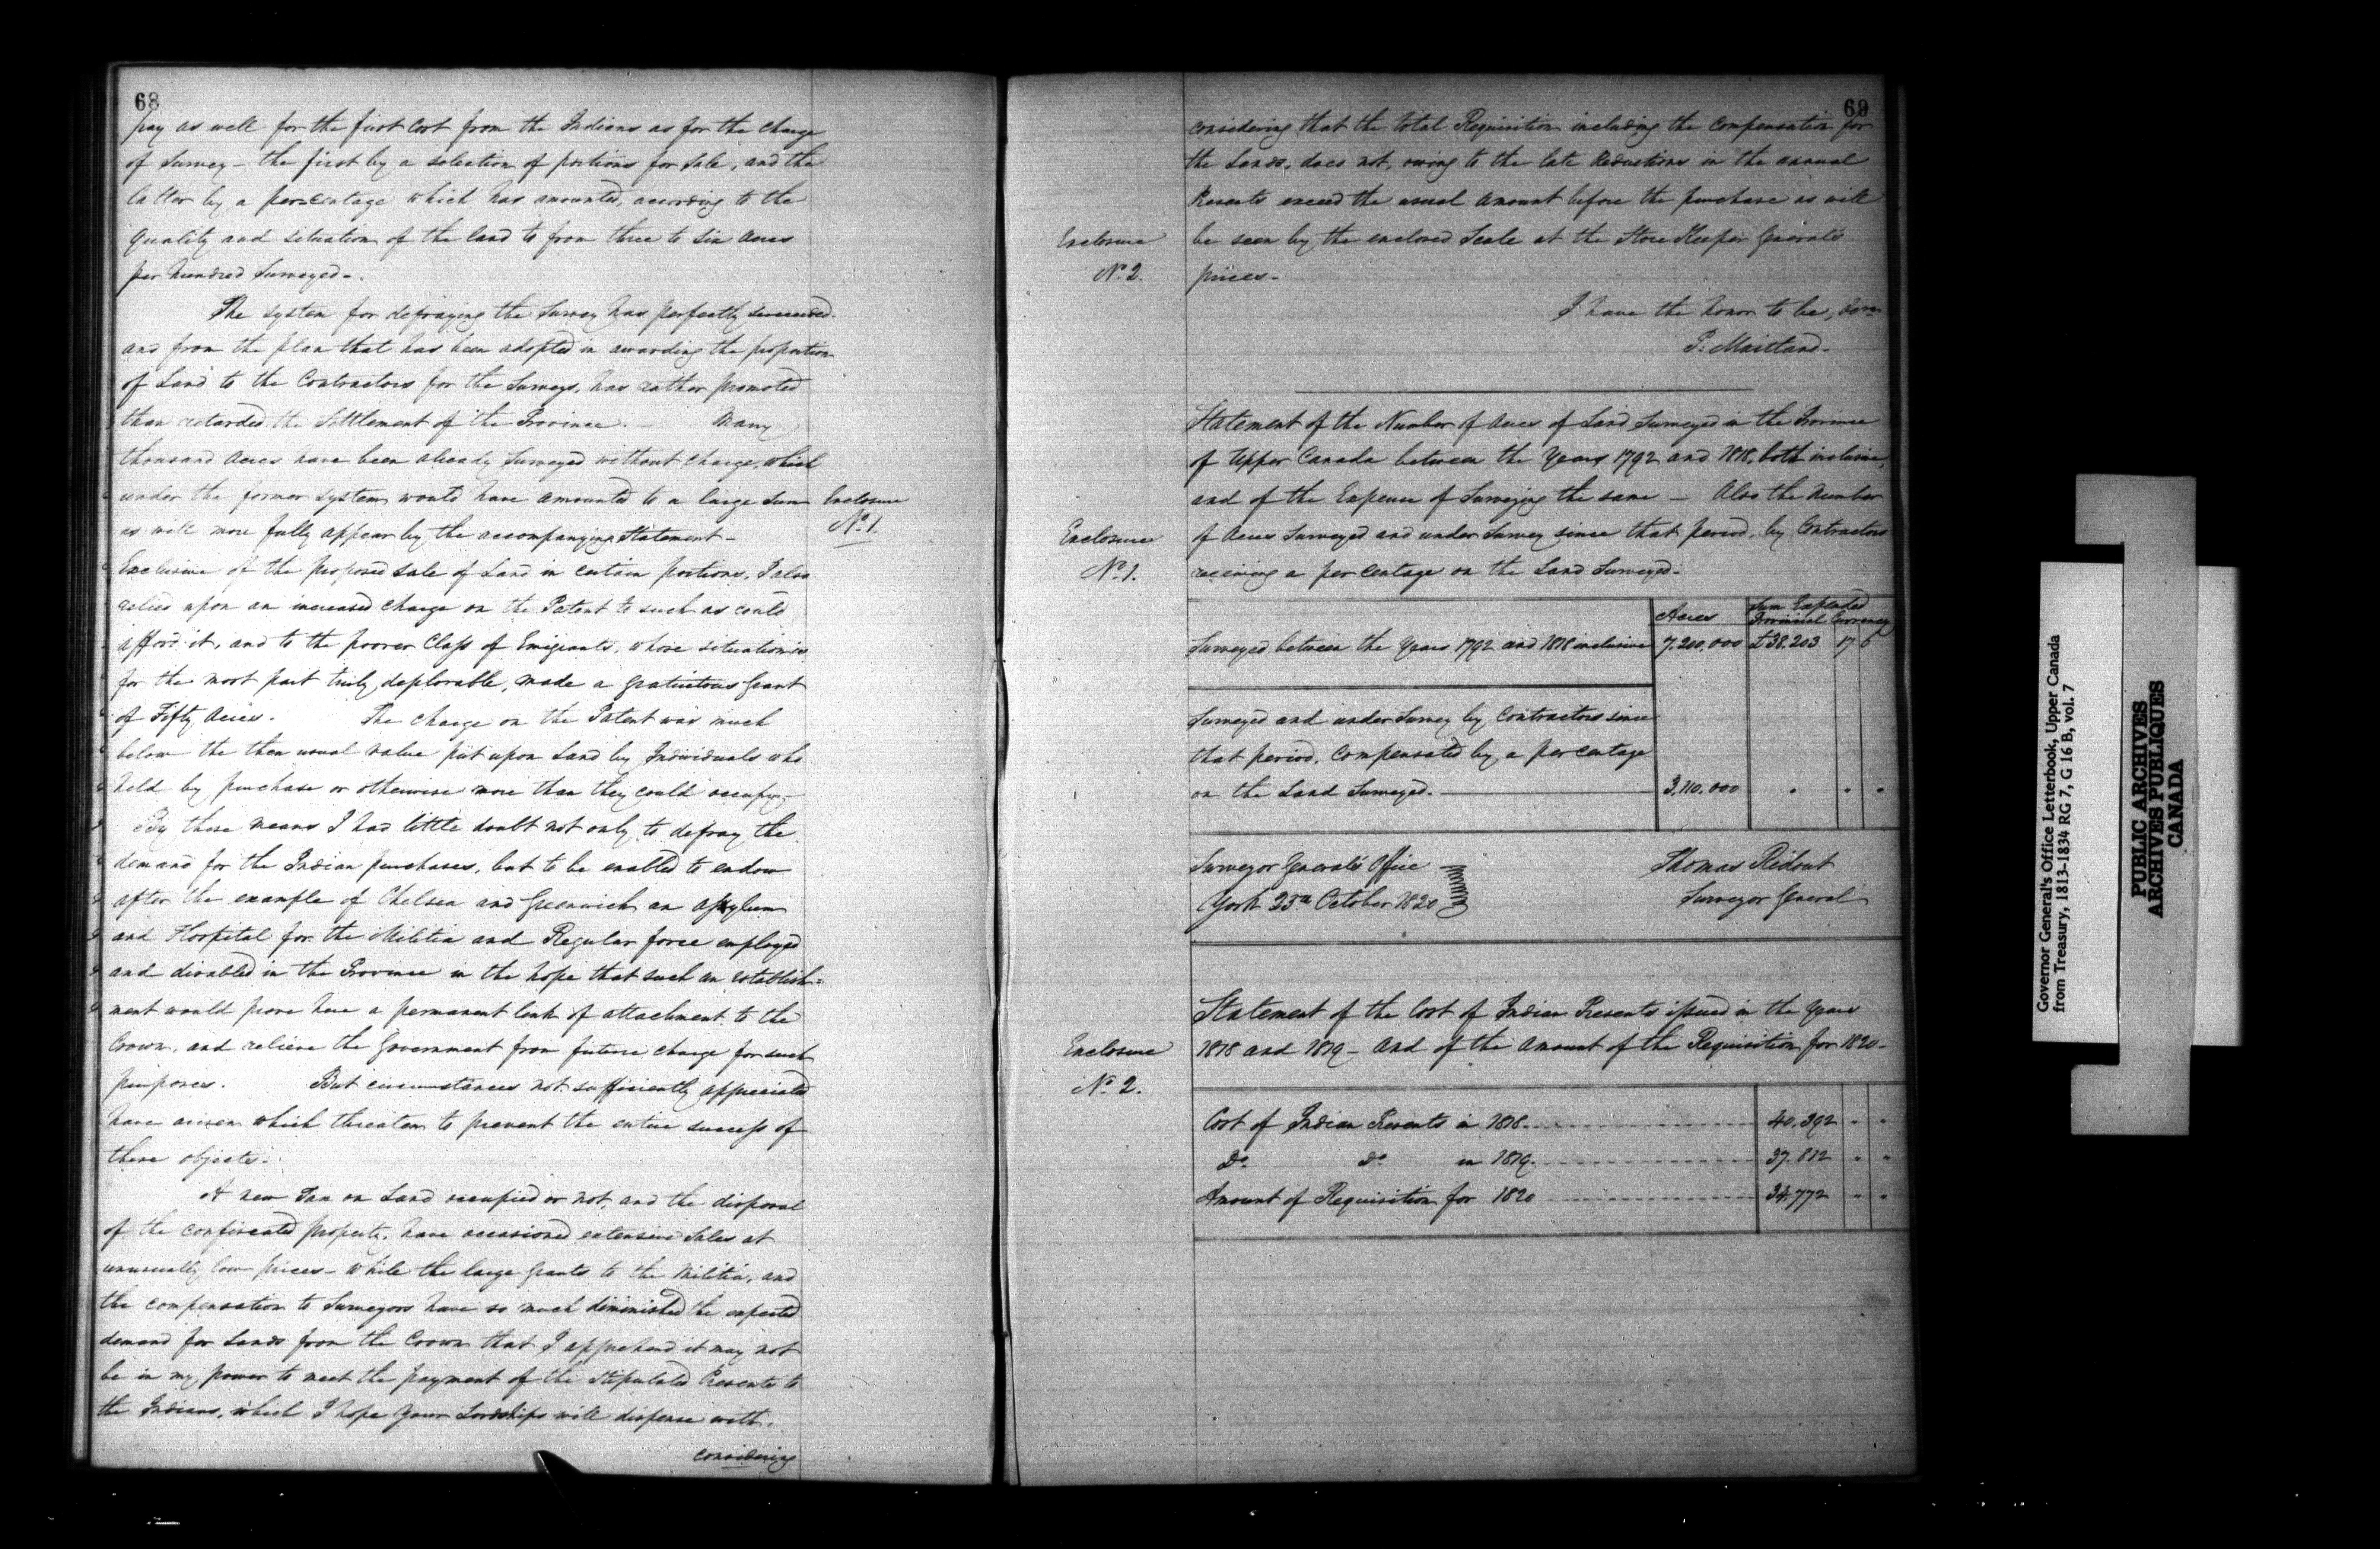 68
pay as well for the first Cost from the Indians as for the charge
of Survey – the first by a selection of portions for Sale, and the
latter by a per=centage which has amounted, according to the
quality and situation of the land to from three to six acres
per hundred Surveyed –.
The system for defraying the Survey has perfectly succeeded.
and from the plan that has been adopted in awarding the proportion
of Land to the Contractors for the Surveys, has rather promoted
than retarded the Settlement of the Province. – Many
thousand Acres have been already Surveyed without charge, which
under the former system would have amounted to a large Sum
as will more fully appear by the accompanying Statement –
Enclosure
No. 1.
Exclusive of the proposed sale of Land in certain portions, I also
relied upon an increased charge on the Patent to such as could
afford it, and to the poorer Class of Emigrants, whose situation is
for the most part truly deplorable, made a gratuitous Grant
of Fifty Acres. The charge on the Patent was much
below the then usual value put upon Land by Individuals who
held by purchase or otherwise more than they could occupy –
By these means I had little doubt not only to defray the
demand for the Indian purchases, but to be enabled to endow
after the example of Chelsea and Greenwich an Asylum
and Hospital for the Militia and Regular force employed
and disabled in the Province in the hope that such an establish=
ment would prove here a permanent link of attachment to the
Crown, and relieve the Government from future charge for such
purposes. But circumstances not sufficiently appreciated
have arisen which threaten to prevent the entire success of
these objects.
A new Tax on Land occupied or not, and the disposal
of the confiscated property, have occasioned extensive Sales at
unusually low prices – while the large grants to the Militia, and
the compensation to Surveyors have so much diminished the expected
demand for Lands from the Crown that I apprehend it may not
be in my power to meet the payment of the stipulated Presents to
the Indians, which I hope Your Lordships will dispense with.
considering
69
considering that the total Requisition including the compensation for
the Lands, does not, owing to the late Reductions in the annual
Presents exceed the usual amount before the purchase as will
be seen by the enclosed Scale at the Store Keeper General's
prices –
Enclosure
No. 2.
I have the honor to be,
P. Maitland –
Statement of the Number of Acres of Land Surveyed in the Province
of Upper Canada between the Years 1792 and 1818, both inclusive,
and of the Expence of Surveying the same – Also the Number
of Acres Surveyed and under Survey since that period, by Contractors
receiving a per centage on the Land Surveyed –
Enclosure
No. 1.
Acres Sum Expended
Provincial Currency
Surveyed between the Years 1792 and 1818 inclusive 7.200.000 £38.203 17 6
Surveyed and under Survey by Contractors since
that period, compensated by a per centage
on the Land Surveyed. 3.110.000 " " "
Surveyor General's Office Thomas Ridout
York 25th October 1820 Surveyor General
Statement of the Cost of Indian Presents issued in the Years
1818 and 1819 – And of the Amount of the Requisition for 1820 –
Enclosure
No. 2.
Cost of Indian Presents in 1818 40.392 " "
Do. Do. in 1819 37.812 " "
Amount of Requisition for 1820 34.772 " "
Governor General's Office Letterbook, Upper Canada
from Treasury, 1813-1834 RG 7, G 16 B, vol. 7
PUBLIC ARCHIVES
ARCHIVES PUBLIQUES
CANADA